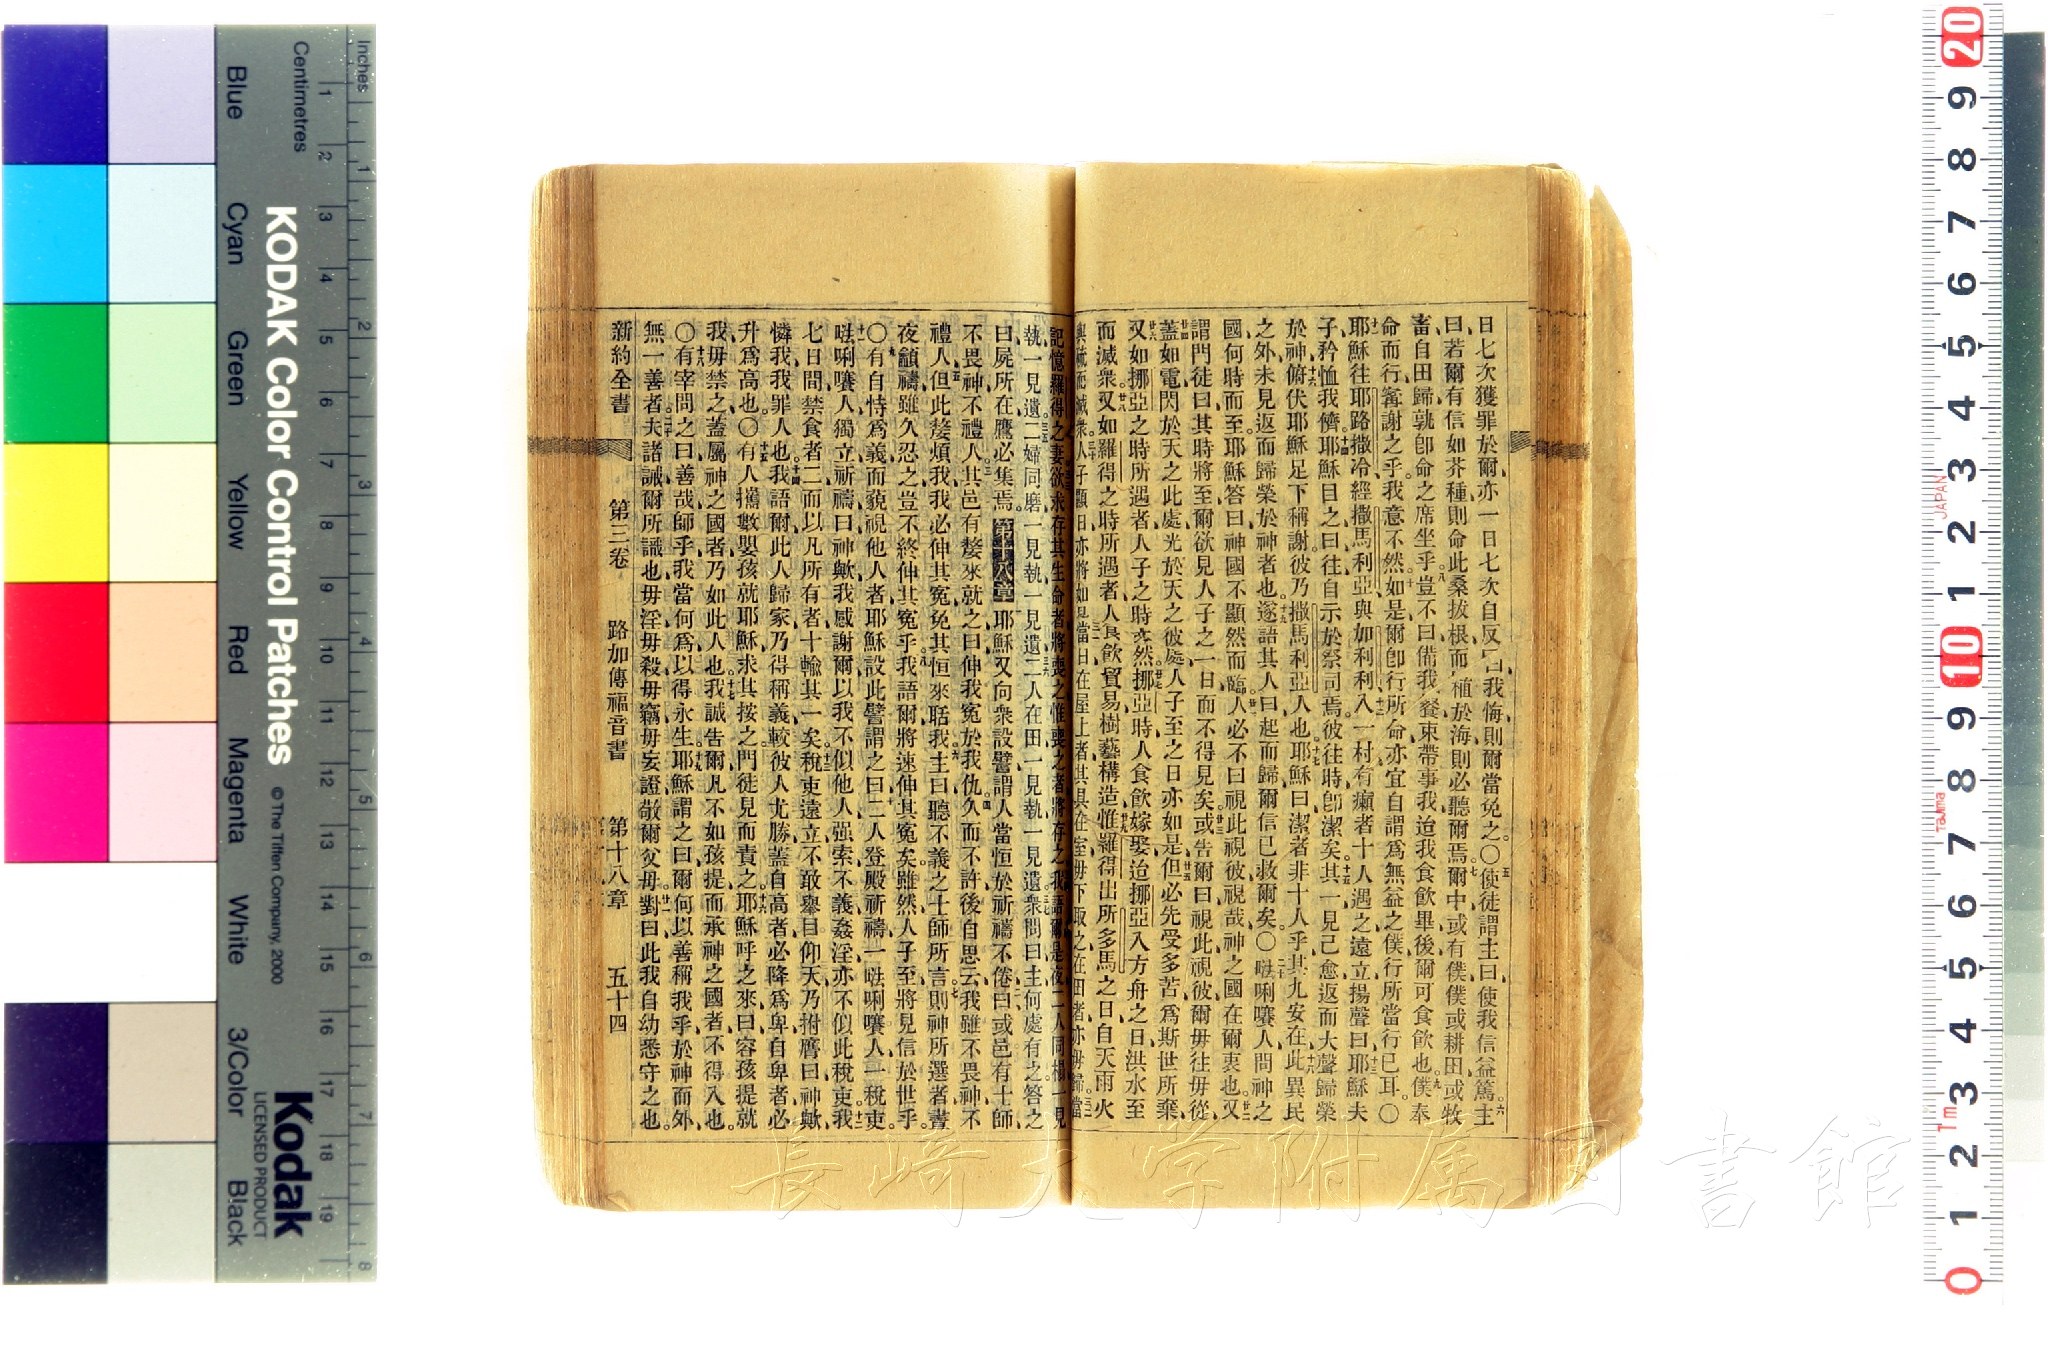 日七次獲罪於爾、亦一日七次自反曰我悔、則爾當免之。〇五使徒謂主曰、使我信益篤。六主
曰、若爾有信如芥種、則命此桑拔根而植於海、則必聽爾焉。七爾中或有僕、僕或耕田或牧
畜、自田歸、孰卽命之席坐乎。八豈不曰、備我餐、束帶事我、迨我食飲畢、後爾可食飲也。九僕奉
命而行、寗謝之乎、我意不然。十如是爾卽行所命、亦宜自謂爲無益之僕、行所當行已耳。〇
十一耶穌往耶路撒冷、經撒馬利亞與加利利、十二入一村、有癩者十人遇之、遠立、十三揚聲曰、耶穌夫
子、矜恤我儕、十四耶穌目之曰、往自示於祭司焉、彼往時卽潔矣。十五其一見己愈、返而大聲歸榮
於神、十六俯伏耶穌足下稱謝、彼乃撒馬利亞人也。十七耶穌曰、潔者非十人乎、其九安在、十八此異民
之外、未見返而歸榮於神者也、十九遂語其人曰、起而歸、爾信已救爾矣。〇二十㕸唎㘔人問神之
國何時而至、耶穌答曰、神國不顯然而臨、廿一人必不曰視此視彼、視哉、神之國在爾衷也。廿二又
謂門徒曰、其時將至、爾欲見人子之一日、而不得見矣、廿三或告爾曰、視此視彼、爾毋往毋從、
廿四蓋如電閃於天之此處、光於天之彼處、人子至之日亦如是、廿五但必先受多苦、爲斯世所棄、
廿六又如挪亞之時所遇者、人子之時亦然。廿七挪亞時人食飲嫁娶、迨挪亞入方舟之日、洪水至
而滅衆。廿八又如羅得之時所遇者、人食飲貿易樹藝構造、廿九惟羅得出所多馬之日、自天雨火
與硫而滅衆、三十人子顯日亦將如是、三一當日在屋上者、其具在室、毋下取之、在田者亦毋歸、三二當
記憶羅得之妻、三三欲求存其生命者、將喪之、惟喪之者、將存之、三四我語爾、是夜二人同榻、一見
執、一見遺。三五二婦同磨、一見執、一見遺、三六二人在田、一見執、一見遺、三七衆問曰、主、何處有之、答之
曰、屍所在、鷹必集焉。第十八章 一耶穌又向衆設譬、謂人當恒於祈禱不倦、二曰、或邑有士師、
不畏神、不禮人、三其邑有嫠來就之曰、伸我冤於我仇、四久而不許、後自思云、我雖不畏神、不
禮人、五但此嫠煩我、我必伸其冤、免其恒來聒我、六主曰、聽不義之士師所言、七則神所選者、晝
夜籲禱、雖久忍之、豈不終伸其冤乎、八我語爾、將速伸其冤矣、雖然、人子至、將見信於世乎。
〇九有自恃爲義而藐視他人者、耶穌設此譬、謂之曰、十二人登殿祈禱、一㕸唎㘔人、一稅吏、
十一㕸唎㘔人獨立祈禱曰、神歟、我感謝爾、以我不似他人、强索不義姦淫、亦不似此稅吏、十二我
七日間禁食者二、而以凡所有者十輸其一矣、十三稅吏遠立、不敢舉目仰天、乃拊膺曰、神歟、
憐我、我罪人也、十四我語爾、此人歸家、乃得稱義、較彼人尤勝、蓋自高者必降爲卑、自卑者必
升爲高也。〇十五有人攜數嬰孩就耶穌、求其按之、門徒見而責之、十六耶穌呼之來曰、容孩提就
我、毋禁之、蓋屬神之國者、乃如此人也、十七我誠告爾、凡不如孩提而承神之國者、不得入也。
〇十八有宰問之曰、善哉師乎、我當何爲以得永生、十九耶穌謂之曰、爾何以善稱我乎、於神而外、
無一善者、二十夫諸誡爾所識也、毋淫、毋殺、毋竊、毋妄證、敬爾父母、廿一對曰、此我自幼悉守之也。
新約全書 第三卷 路加傳福音書 第十八章 五十四
長崎大学附属図書館
KODAK Color Control Patches © The Tiffen Company, 2000
Kodak
LICENSED PRODUCT
Inches 1 2 3 4 5 6 7 8
Centimetres 1 2 3 4 5 6 7 8 9 10 11 12 13 14 15 16 17 18 19
Blue Cyan Green Yellow Red Magenta White 3/Color Black
20 9 8 7 6 5 4 3 2 1 10 9 8 7 6 5 4 3 2 1 0
JAPAN
Tajima
Tm